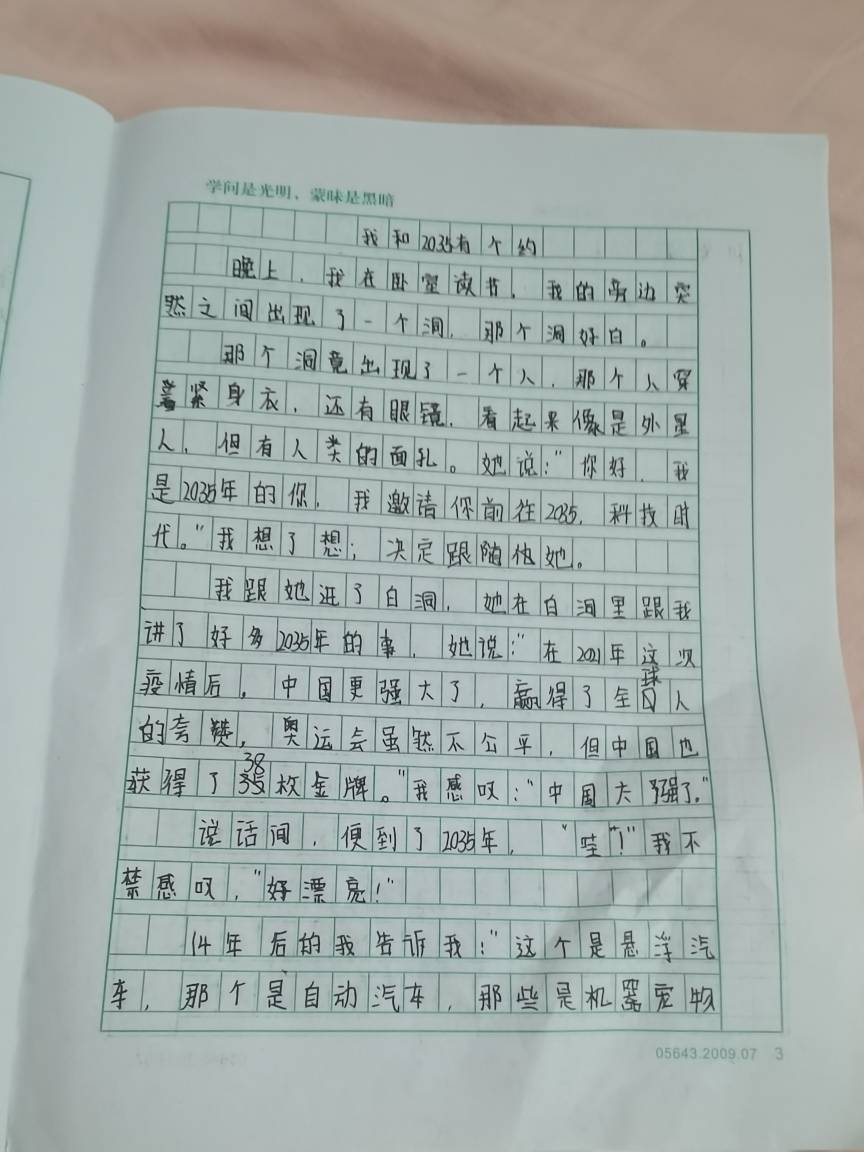 学问是光明，蒙昧是黑暗
我和2035有个约
晚上，我在卧室读书，我的旁边突
然之间出现了一个洞，那个洞好白。
那个洞竟出现了一个人，那个人穿
着紧身衣，还有眼镜，看起来像是外星
人，但有人类的面孔。她说：“你好，我
是2035年的你，我邀请你前往2035，科技时
代。”我想了想；决定跟随她。
我跟她进了白洞，她在白洞里跟我
讲了好多2035年的事，她说：“在2021年这次
疫情后，中国更强大了，赢得了全球人
的夸赞，奥运会虽然不公平，但中国也
获得了38枚金牌。”我感叹：“中国太强了。”
说话间，便到了2035年，“哇”！”我不
禁感叹，“好漂亮！”
14年后的我告诉我：“这个是悬浮汽
车，那个是自动汽车，那些是机器宠物
05643.2009.07 3